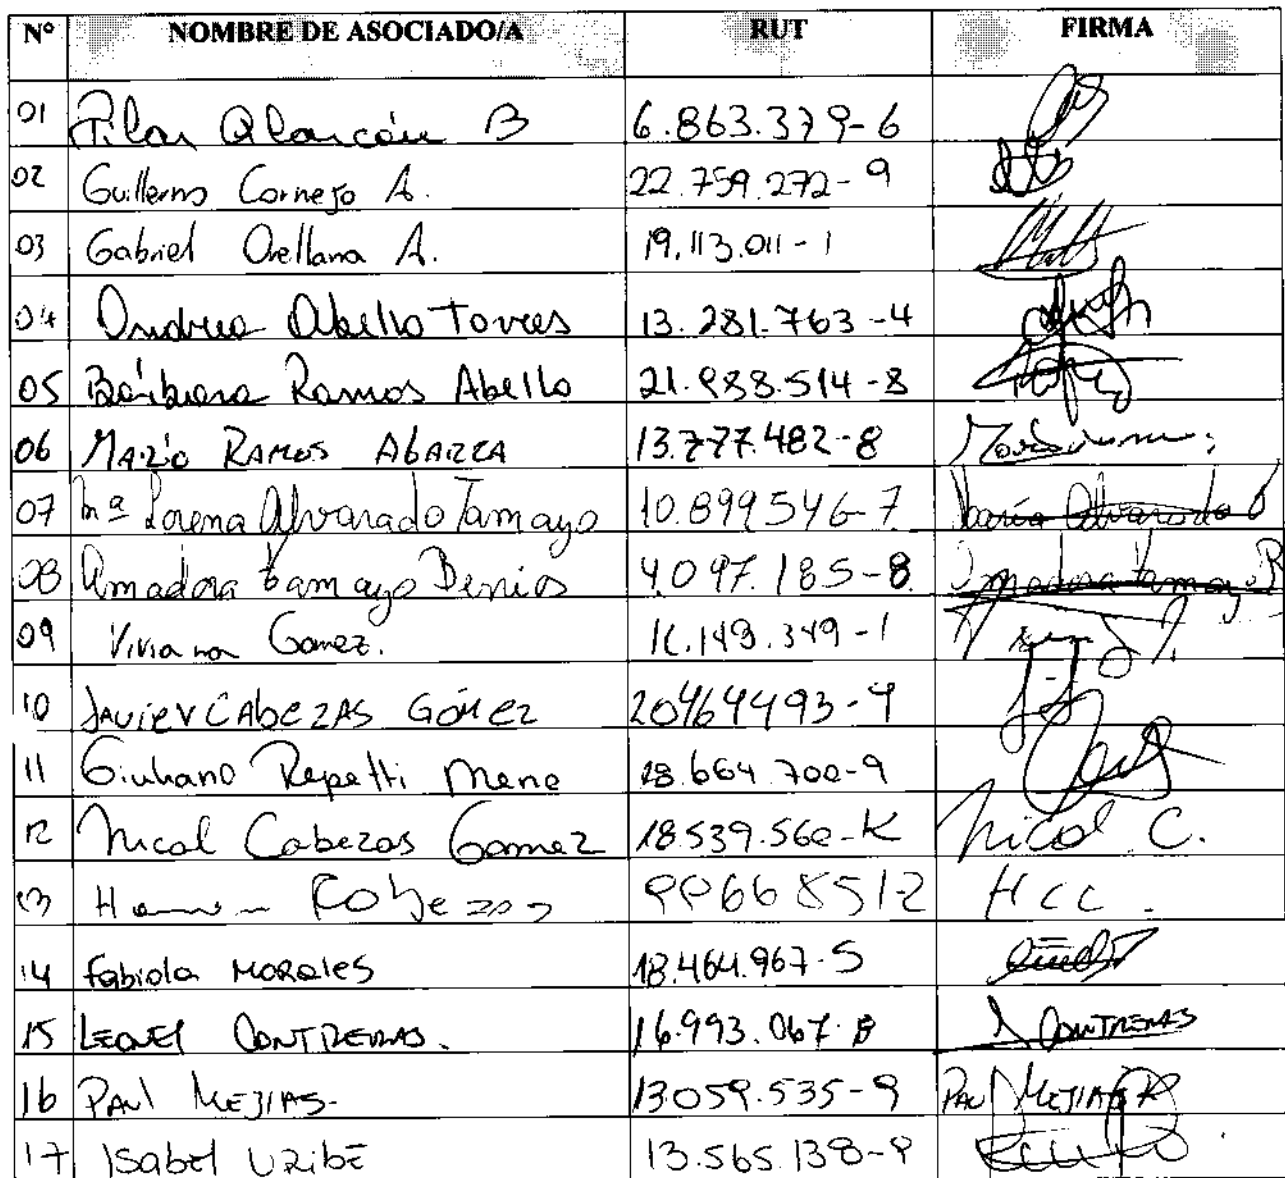 Nº NOMBRE DE ASOCIADO/A RUT FIRMA
01 Pilar Alarcón B 6.863.379-6
02 Guillermo Cornejo A. 22.759.272-9
03 Gabriel Orellana A. 19.113.011-1
04 Andrea Abello Torres 13.281.763-4
05 Bárbara Ramos Abello 21.988.514-8
06 MARIO RAMOS AbARZA 13.777.482-8
07 Mª Lorena Alvarado Tamayo 10.899546-7 María Alvarado
08 Amadora Tamayo Berrios 4.097.185-8 Amadora Tamayo B
09 Viviana Gomez. 11.149.349-1
10 JAVIER CAbEZAS GÓMEZ 20464493-9
11 Giuliano Repetti Mene 18.664.700-9
12 Nicol Cabezas Gomez 18.539.560-K Nicol C.
13 HCC.
14 Fabiola MORALES 18.464.967-5
15 LEONEL CONTRERAS. 16.993.067-8 CONTRERAS
16 PAUL MEJIAS- 13059.535-9 PAUL MEJIAS R
17 ISabel URIBE 13.565.138-9